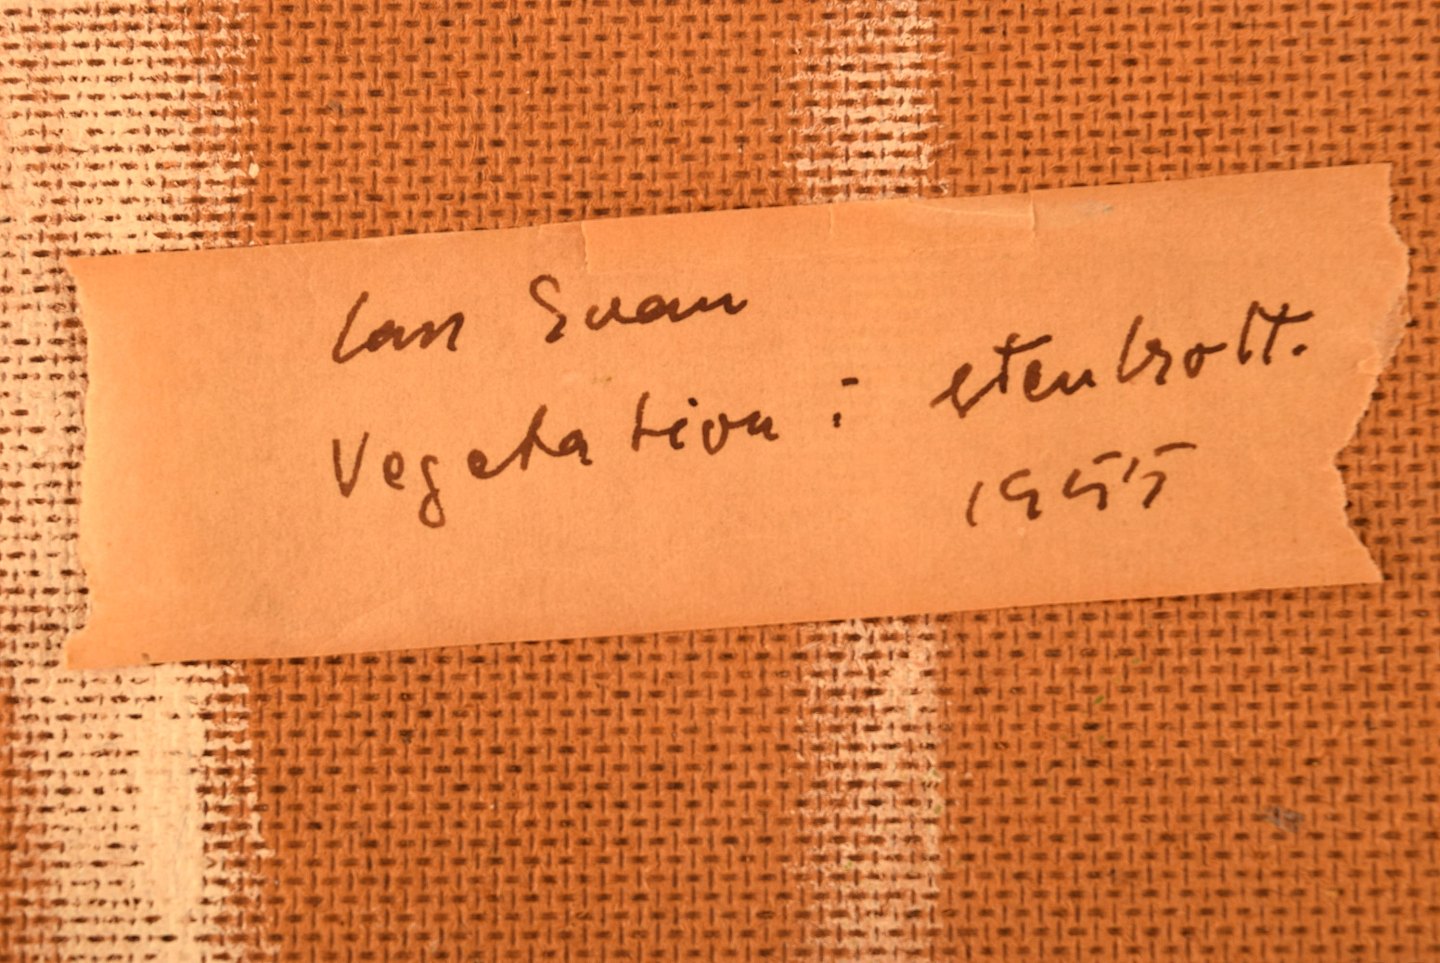 Lars Svan
Vegetation i stenbrott.
1955